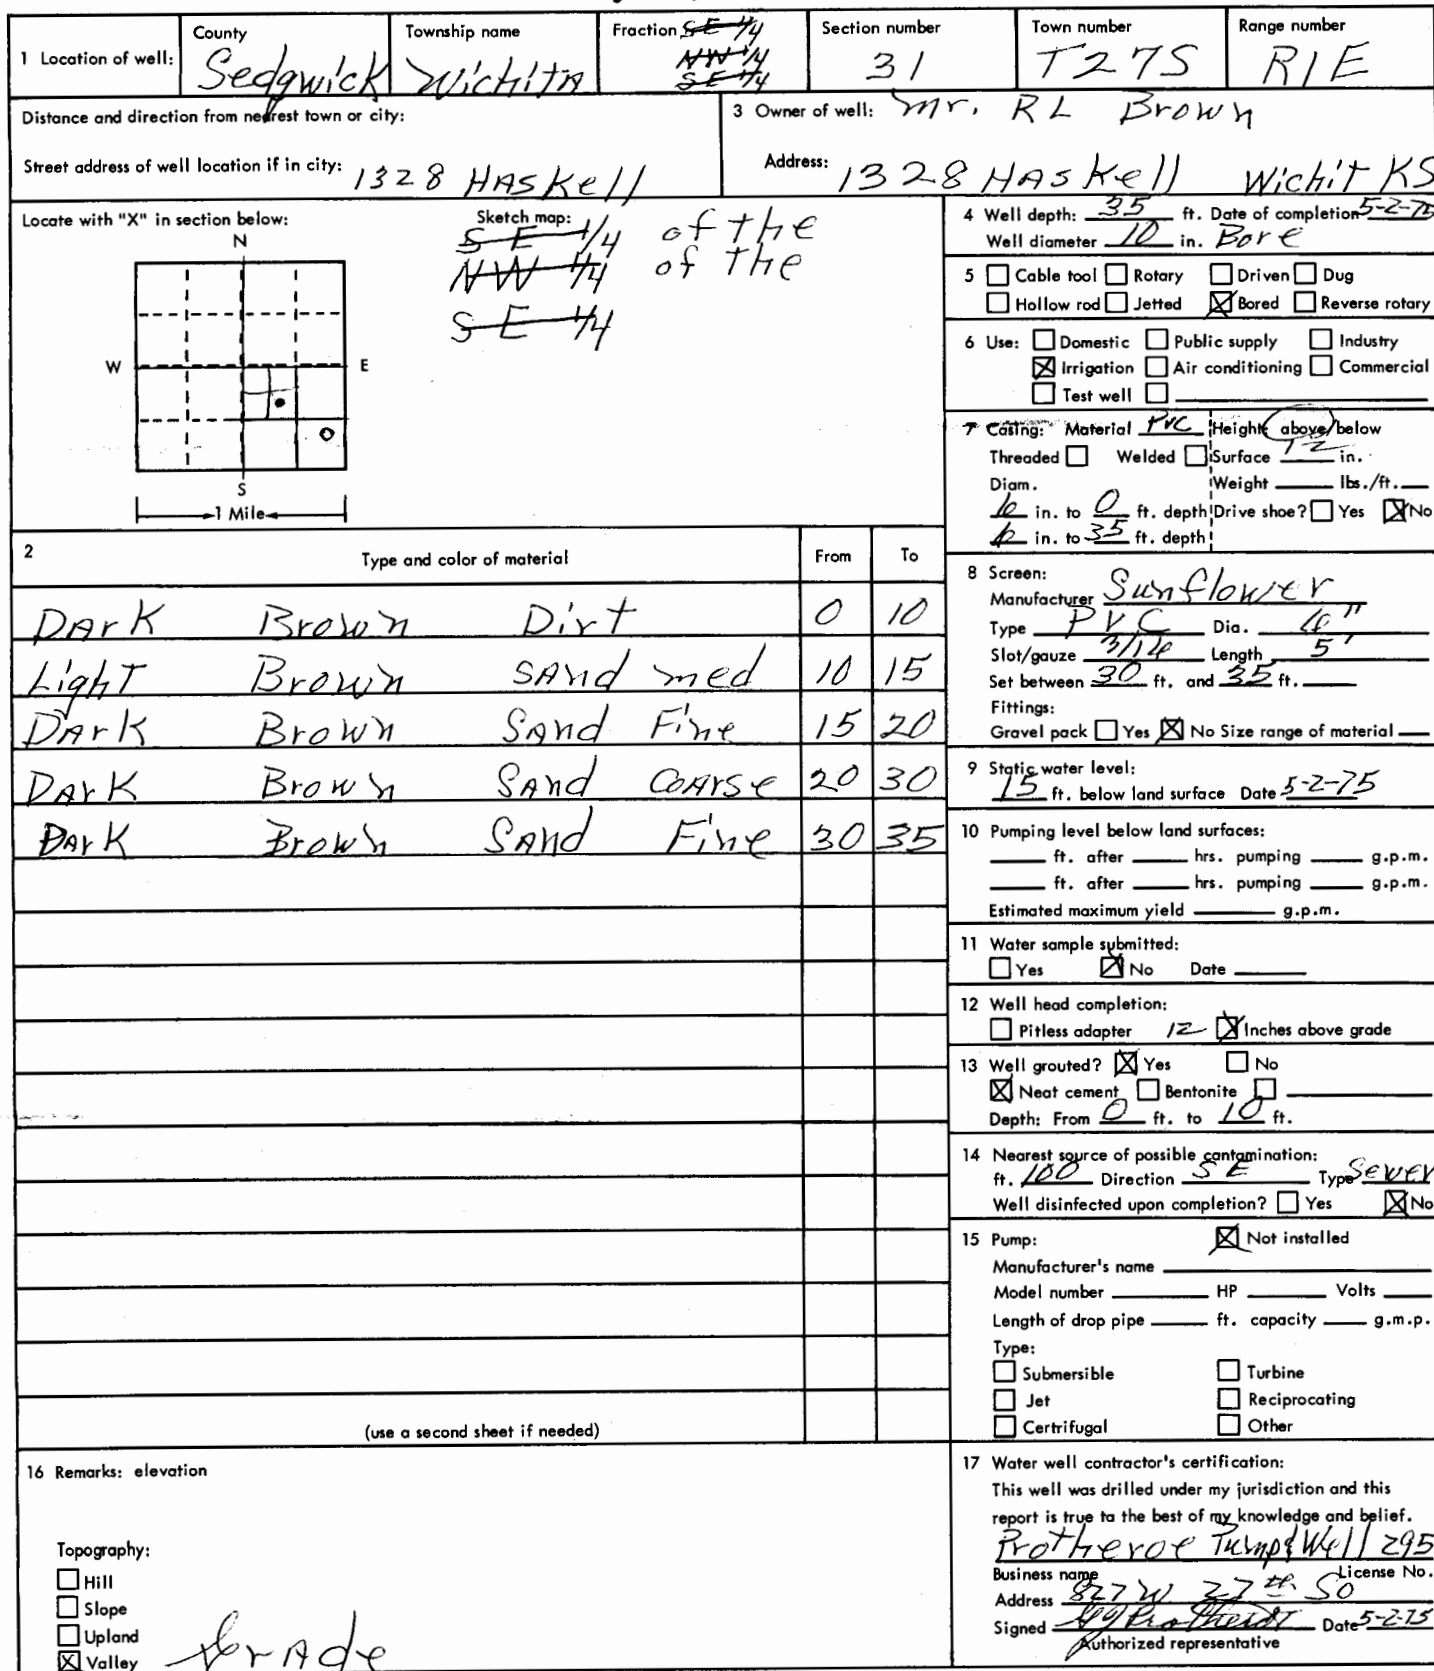 1 Location of well: County Sedgwick Township name Wichita Fraction SE 1/4 NW 1/4 SE 1/4 Section number 31 Town number T27S Range number R1E
Distance and direction from nearest town or city:
Street address of well location if in city: 1328 HASKell
3 Owner of well: Mr. RL Brown
Address: 1328 HASKell Wichit KS
Locate with "X" in section below:
N
W E
S
1 Mile
Sketch map:
SE 1/4 of the
NW 1/4 of the
SE 1/4
4 Well depth: 35 ft. Date of completion 5-2-75
Well diameter 10 in. Bore
5 Cable tool Rotary Driven Dug
Hollow rod Jetted ☒ Bored Reverse rotary
6 Use: Domestic Public supply Industry
☒ Irrigation Air conditioning Commercial
Test well
7 Casing: Material PVC Height: above/below
Threaded Welded Surface 12 in.
Diam. Weight lbs./ft.
in. to 0 ft. depth Drive shoe? Yes ☒ No
in. to 35 ft. depth
2 Type and color of material From To
DArK Brown Dirt 0 10
LighT Brown SAnd med 10 15
DArK Brown SAnd Fine 15 20
DArK Brown SAnd COArse 20 30
DArK Brown SAnd Fine 30 35
(use a second sheet if needed)
8 Screen:
Manufacturer Sunflower
Type PVC Dia.
Slot/gauze Length 5'
Set between 30 ft. and 35 ft.
Fittings:
Gravel pack Yes ☒ No Size range of material
9 Static water level:
15 ft. below land surface Date 5-2-75
10 Pumping level below land surfaces:
ft. after hrs. pumping g.p.m.
ft. after hrs. pumping g.p.m.
Estimated maximum yield g.p.m.
11 Water sample submitted:
Yes ☒ No Date
12 Well head completion:
Pitless adapter 12 ☒ Inches above grade
13 Well grouted? ☒ Yes No
☒ Neat cement Bentonite
Depth: From 0 ft. to 10 ft.
14 Nearest source of possible contamination:
ft. 100 Direction SE Type Sewer
Well disinfected upon completion? Yes ☒ No
15 Pump: ☒ Not installed
Manufacturer's name
Model number HP Volts
Length of drop pipe ft. capacity g.m.p.
Type:
Submersible Turbine
Jet Reciprocating
Certrifugal Other
16 Remarks: elevation
Topography:
Hill
Slope
Upland
☒ Valley
GrAde
17 Water well contractor's certification:
This well was drilled under my jurisdiction and this
report is true to the best of my knowledge and belief.
Protheroe Pump & Well 295
Business name License No.
Address 827 W 27th So
Signed Date 5-2-75
Authorized representative